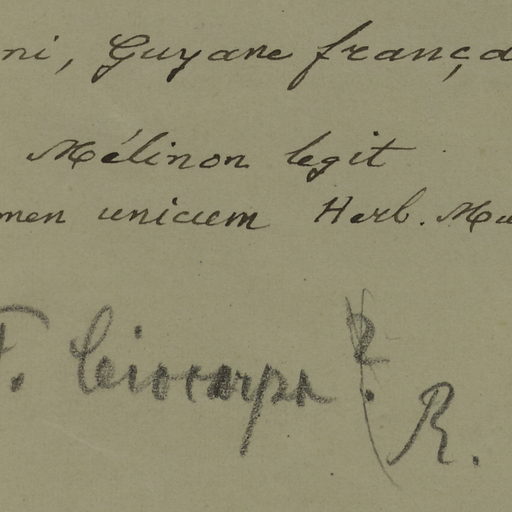 ni, Guyane frança
Mélinon legit
men unicum Herb. Mu
F. leiocarpa ?
R.